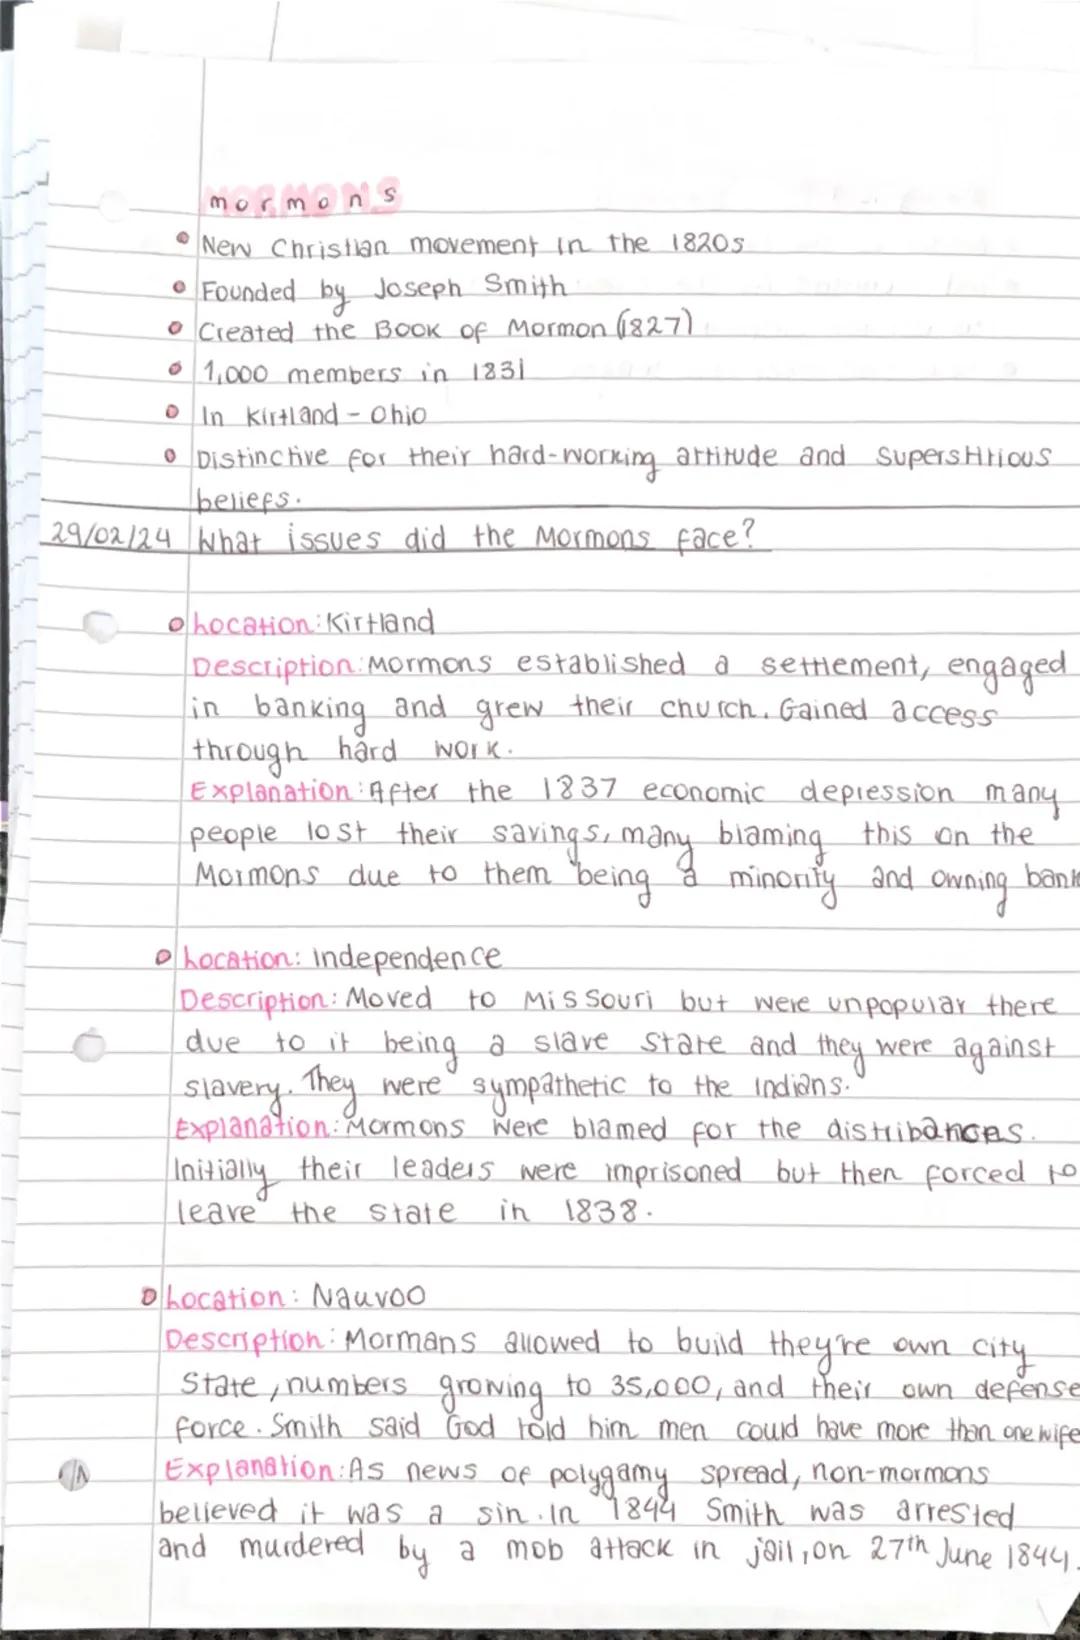 mormons
• New Christian movement in the 1820s
• Founded by Joseph Smith
• Created the Book of Mormon (1827)
• 1,000 members in 1831
• In Kirtland - Ohio
• Distinctive for their hard-working attitude and superstitious
beliefs.
29/02/24 What issues did the Mormons face?
• Location: Kirtland
Description: Mormons established a settlement, engaged
in banking and grew their church. Gained access
through hard work.
Explanation: After the 1837 economic depression many
people lost their savings, many blaming this on the
Mormons due to them being a minority and owning bank
• Location: Independence
Description: Moved to Missouri but were unpopular there
due to it being a slave state and they were against
slavery. They were sympathetic to the Indians.
Explanation: Mormons were blamed for the distribances.
Initially their leaders were imprisoned but then forced to
leave the state in 1838.
• Location: Nauvoo
Description: Mormans allowed to build they're own city
state, numbers growing to 35,000, and their own defense
force. Smith said God told him men could have more than one wife
Explanation: As news of polygamy spread, non-mormons
believed it was a sin. In 1844 Smith was arrested
and murdered by a mob attack in jail, on 27th June 1844.